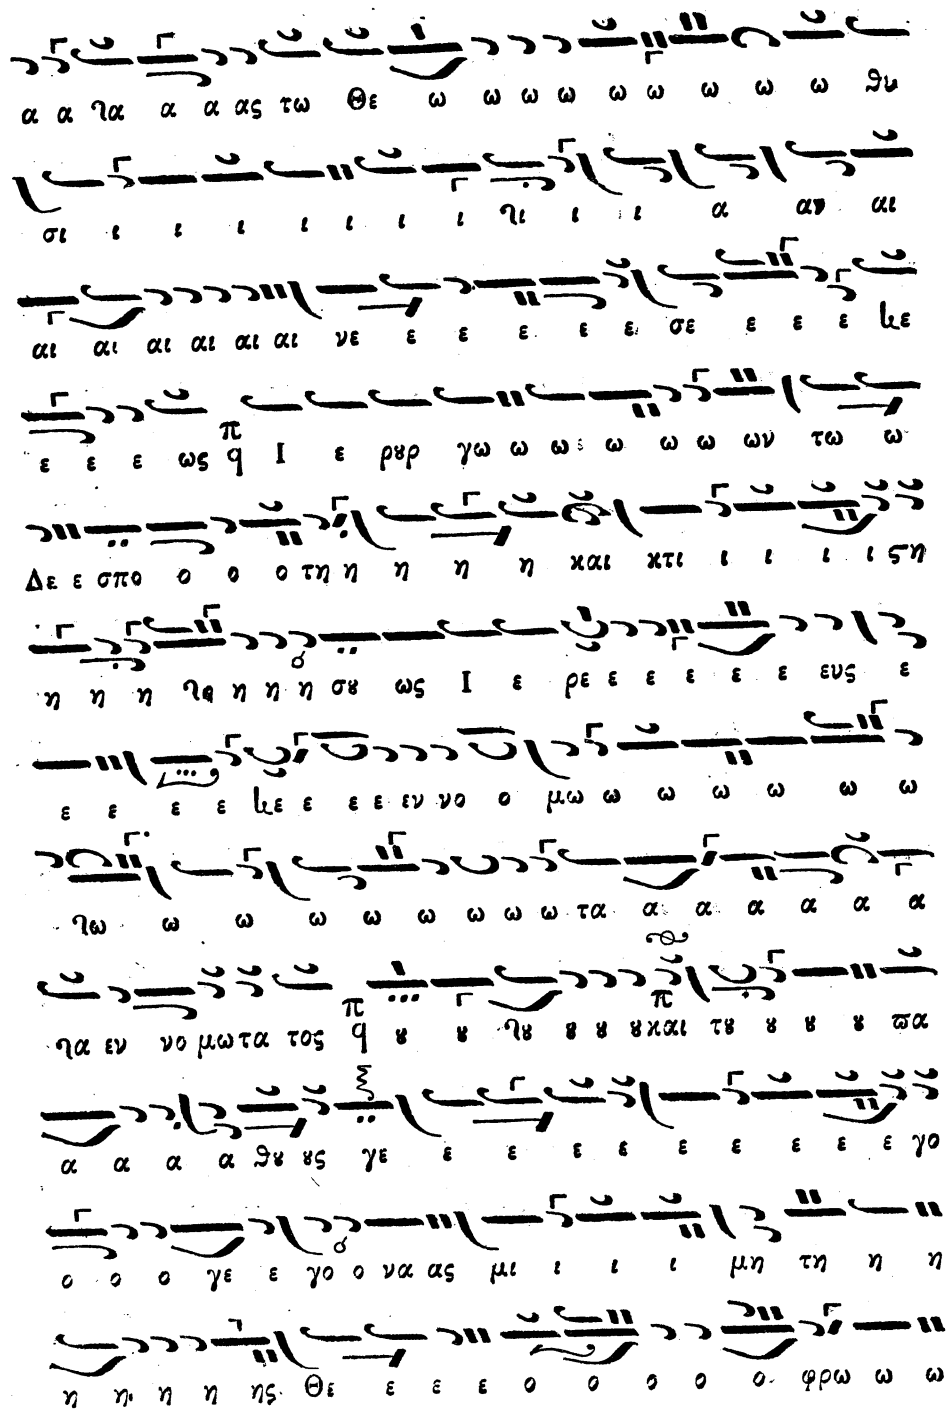 α α ϡα α α ας τω Θε ω ω ω ω ω ω ω ω ω ϑυ
σι ι ι ι ι ι ι ι ϡι ι ι α αν αι
αι αι αι αι αι αι νε ε ε ε ε ε σε ε ε ε κε
ε ε ε ως π q Ι ε ρȣρ γω ω ω ω ω ω ων τω ω
Δε ε σπο ο ο ο τη η η η η και κτι ι ι ι ι ϛη
η η η ϡη η η η σȣ ως Ι ε ρε ε ε ε ε ε ευς ε
ε ε ε ε κε ε ε ε εν νο ο μω ω ω ω ω ω ω
ϡω ω ω ω ω ω ω ω ω τα α α α α α α
ϡα εν νο μω τα τος π q ȣ ȣ ϡȣ ȣ ȣ ȣ π και τȣ ȣ ȣ ȣ ϖα
α α α α ϑȣ ȣς γε ε ε ε ε ε ε ε ε ε γο
ο ο ο γε ε γο ο να ας μι ι ι ι μη τη η η
η η η η ης Θε ε ε ε ο ο ο ο ο φρω ω ω